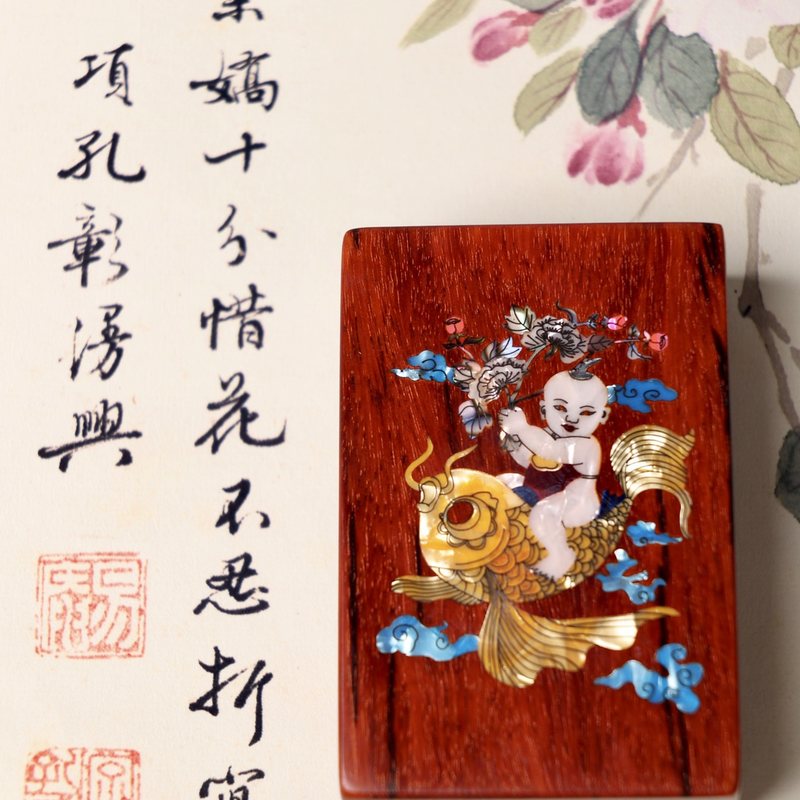 嬌十分惜花不忍折
項孔彰漫興